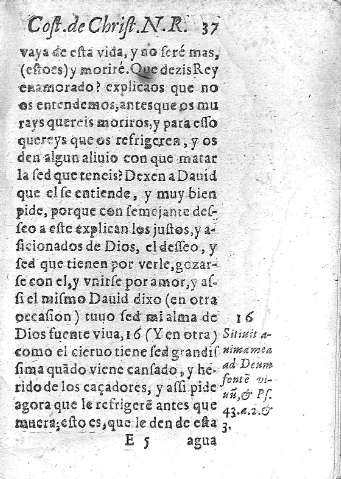 Cost. de Christ. N. R. 37
vaya de esta vida, y no seré mas,
(esto es) y moriré. Que dezis Rey
enamorado? explicaos que no
os entendemos, antes que os mu
rays quereis moriros, y para esso
quereys que os refrigeren, y os
den algun aliuio con que matar
la sed que teneis? Dexen a Dauid
que el se entiende, y muy bien
pide, porque con semejante des-
seo a este explican los justos, y a-
ficionados de Dios, el desseo, y
sed que tienen por verle, gozar-
se con el, y vnirse por amor, y as-
si el mismo Dauid dixo (en otra
occasion) tuuo sed mi alma de
Dios fuente viua, 16 (Y en otra)
como el cieruo tiene sed grandis
sima quãdo viene cansado, y he-
rido de los caçadores, y assi pide
agora que le refrigerẽ antes que
muera; esto es, que le den de esta
E 5 agua
16
Sitiuit a-
nima mea
ad Deum
fontẽ vi-
uũ, & Ps.
43. a. 2. &
3.